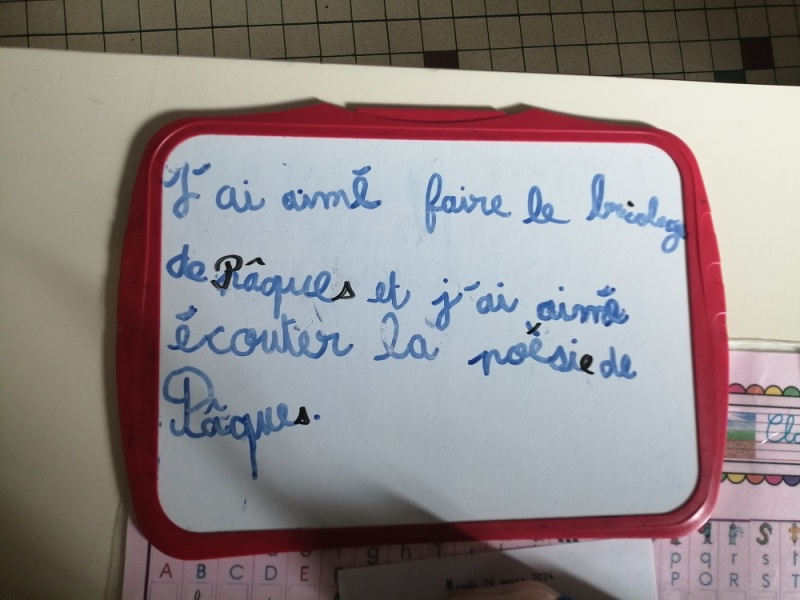 J'ai aimé faire le bricolage
de Pâques et j'ai aimé
écouter la poésie de
Pâques.
Cla
g h
p q r s t
A B C D E
P Q R S T
Mardi 26 mars 2024